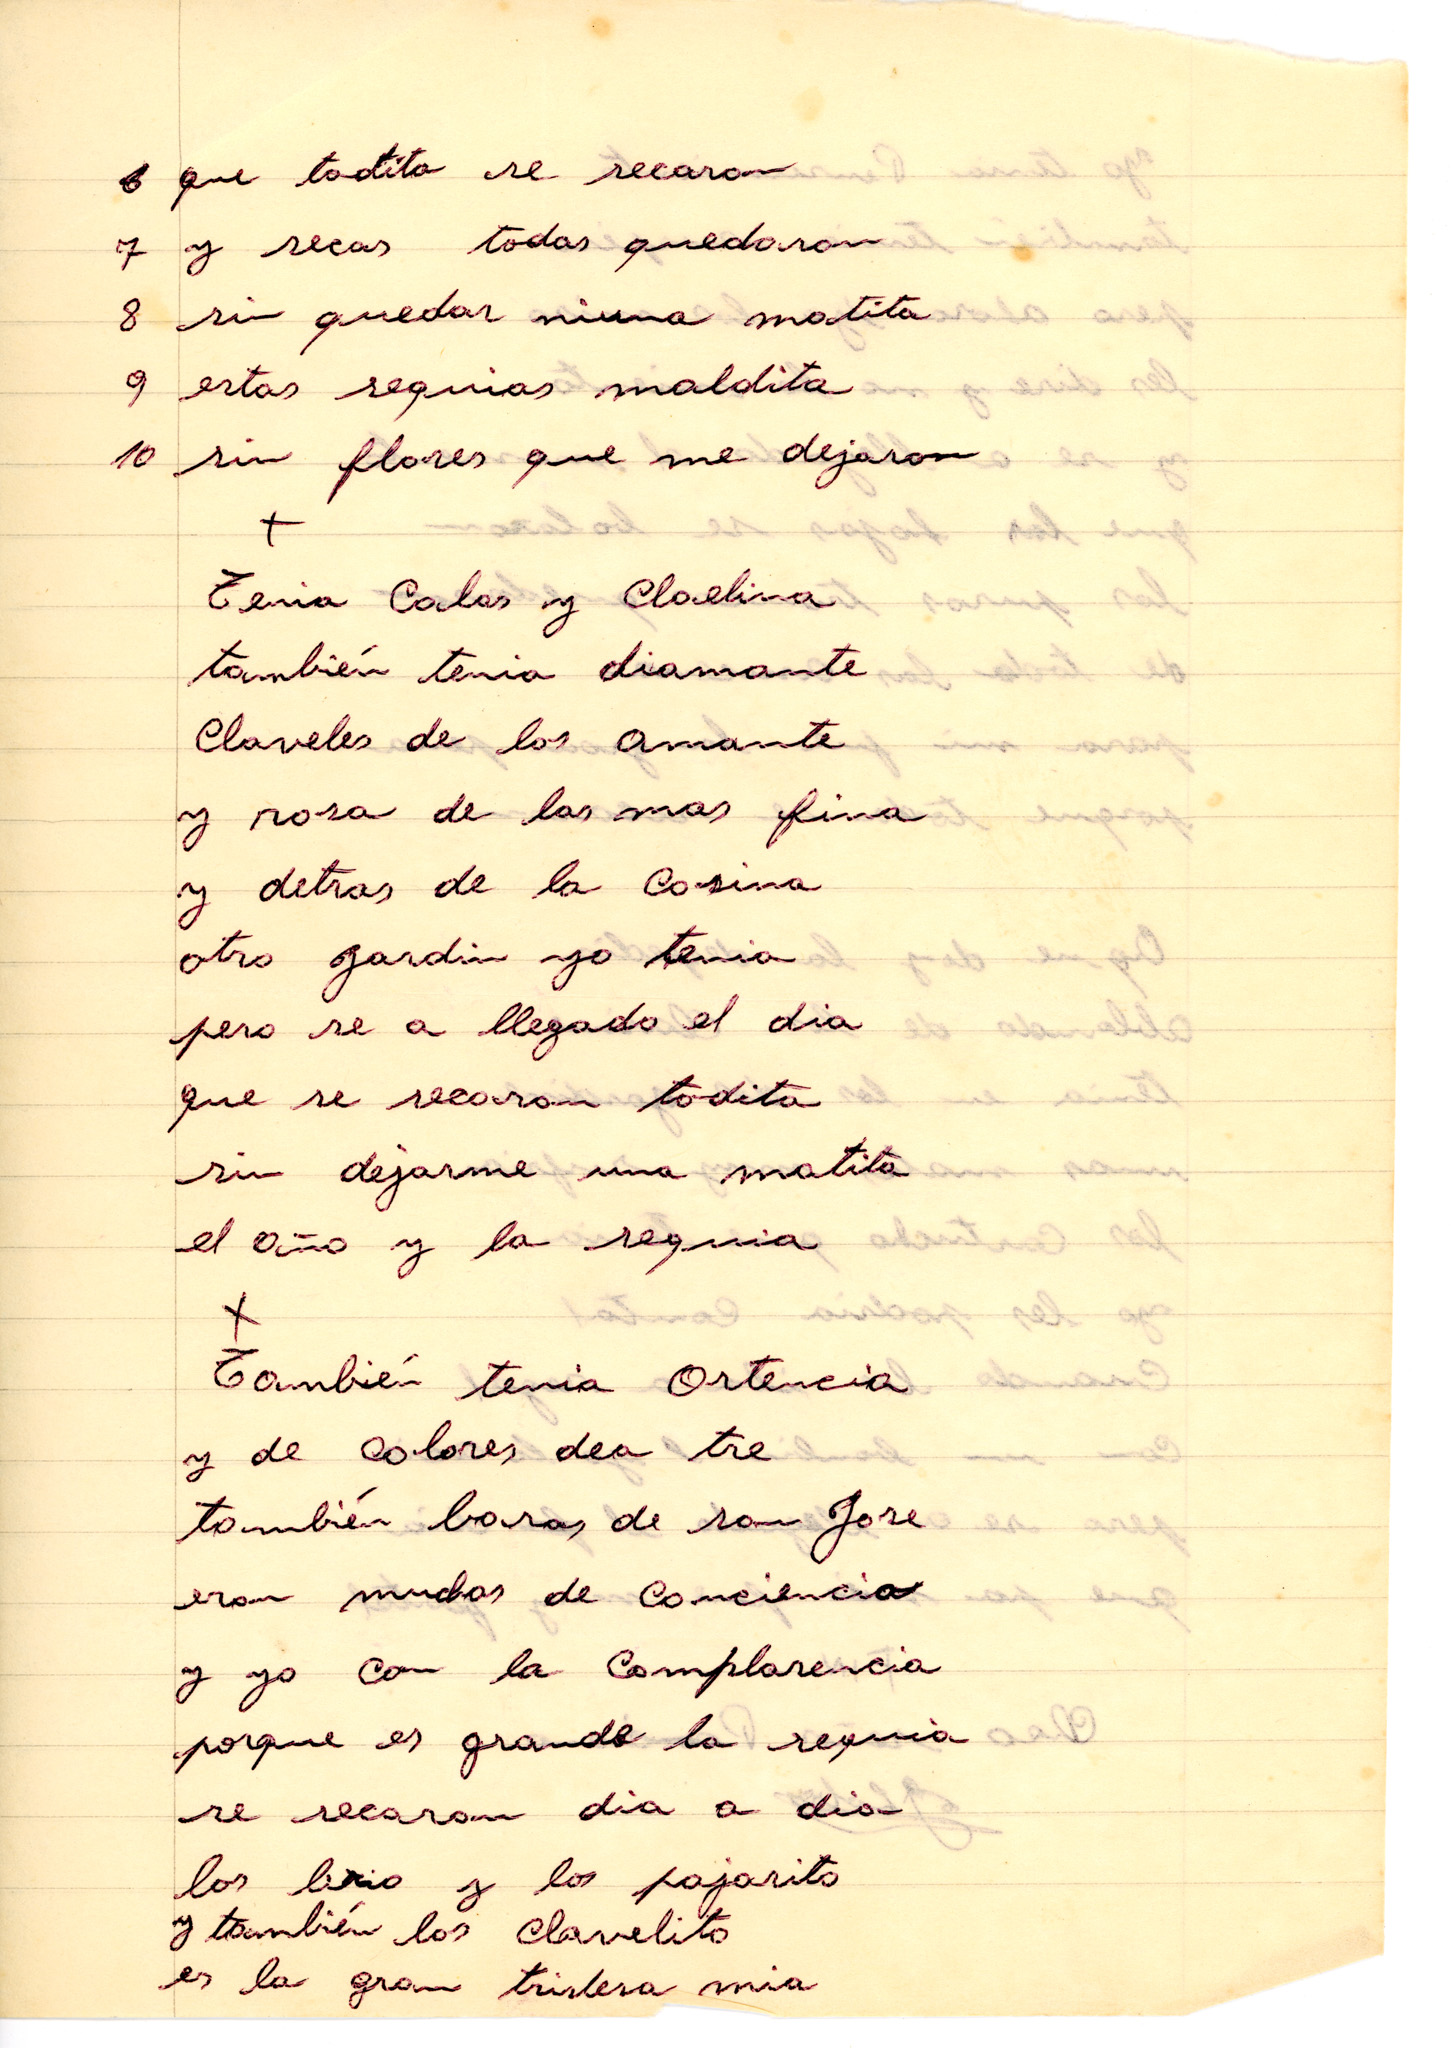 6 que todita se secaron
7 y secas todas quedaron
8 sin quedar niuna matita
9 estas sequias maldita
10 sin flores que me dejaron
+
Tenia Calas y Claelina
también tenia diamante
Claveles de los amante
y rosa de las mas fina
y detras de la Cosina
otro Jardin yo tenia
pero se a llegado el dia
que se secaron todita
sin dejarme una matita
el año y la sequia
+
También tenia Ortencia
y de Colores dea tre
también baras de san Jose
eran mudas de Conciencia
y yo con la Complasencia
porque es grande la sequia
se secaron dia a dia
los lirio y los pajarito
y también los Clavelito
es la gran tristesa mia